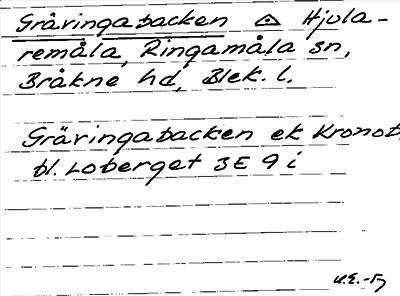 Gräringabacken Hjula-
remåla, Ringamåla sn,
Bräkne hd, Blek. l.
Gräringabacken ek Kronot.
bl. Loberget 3E 9i